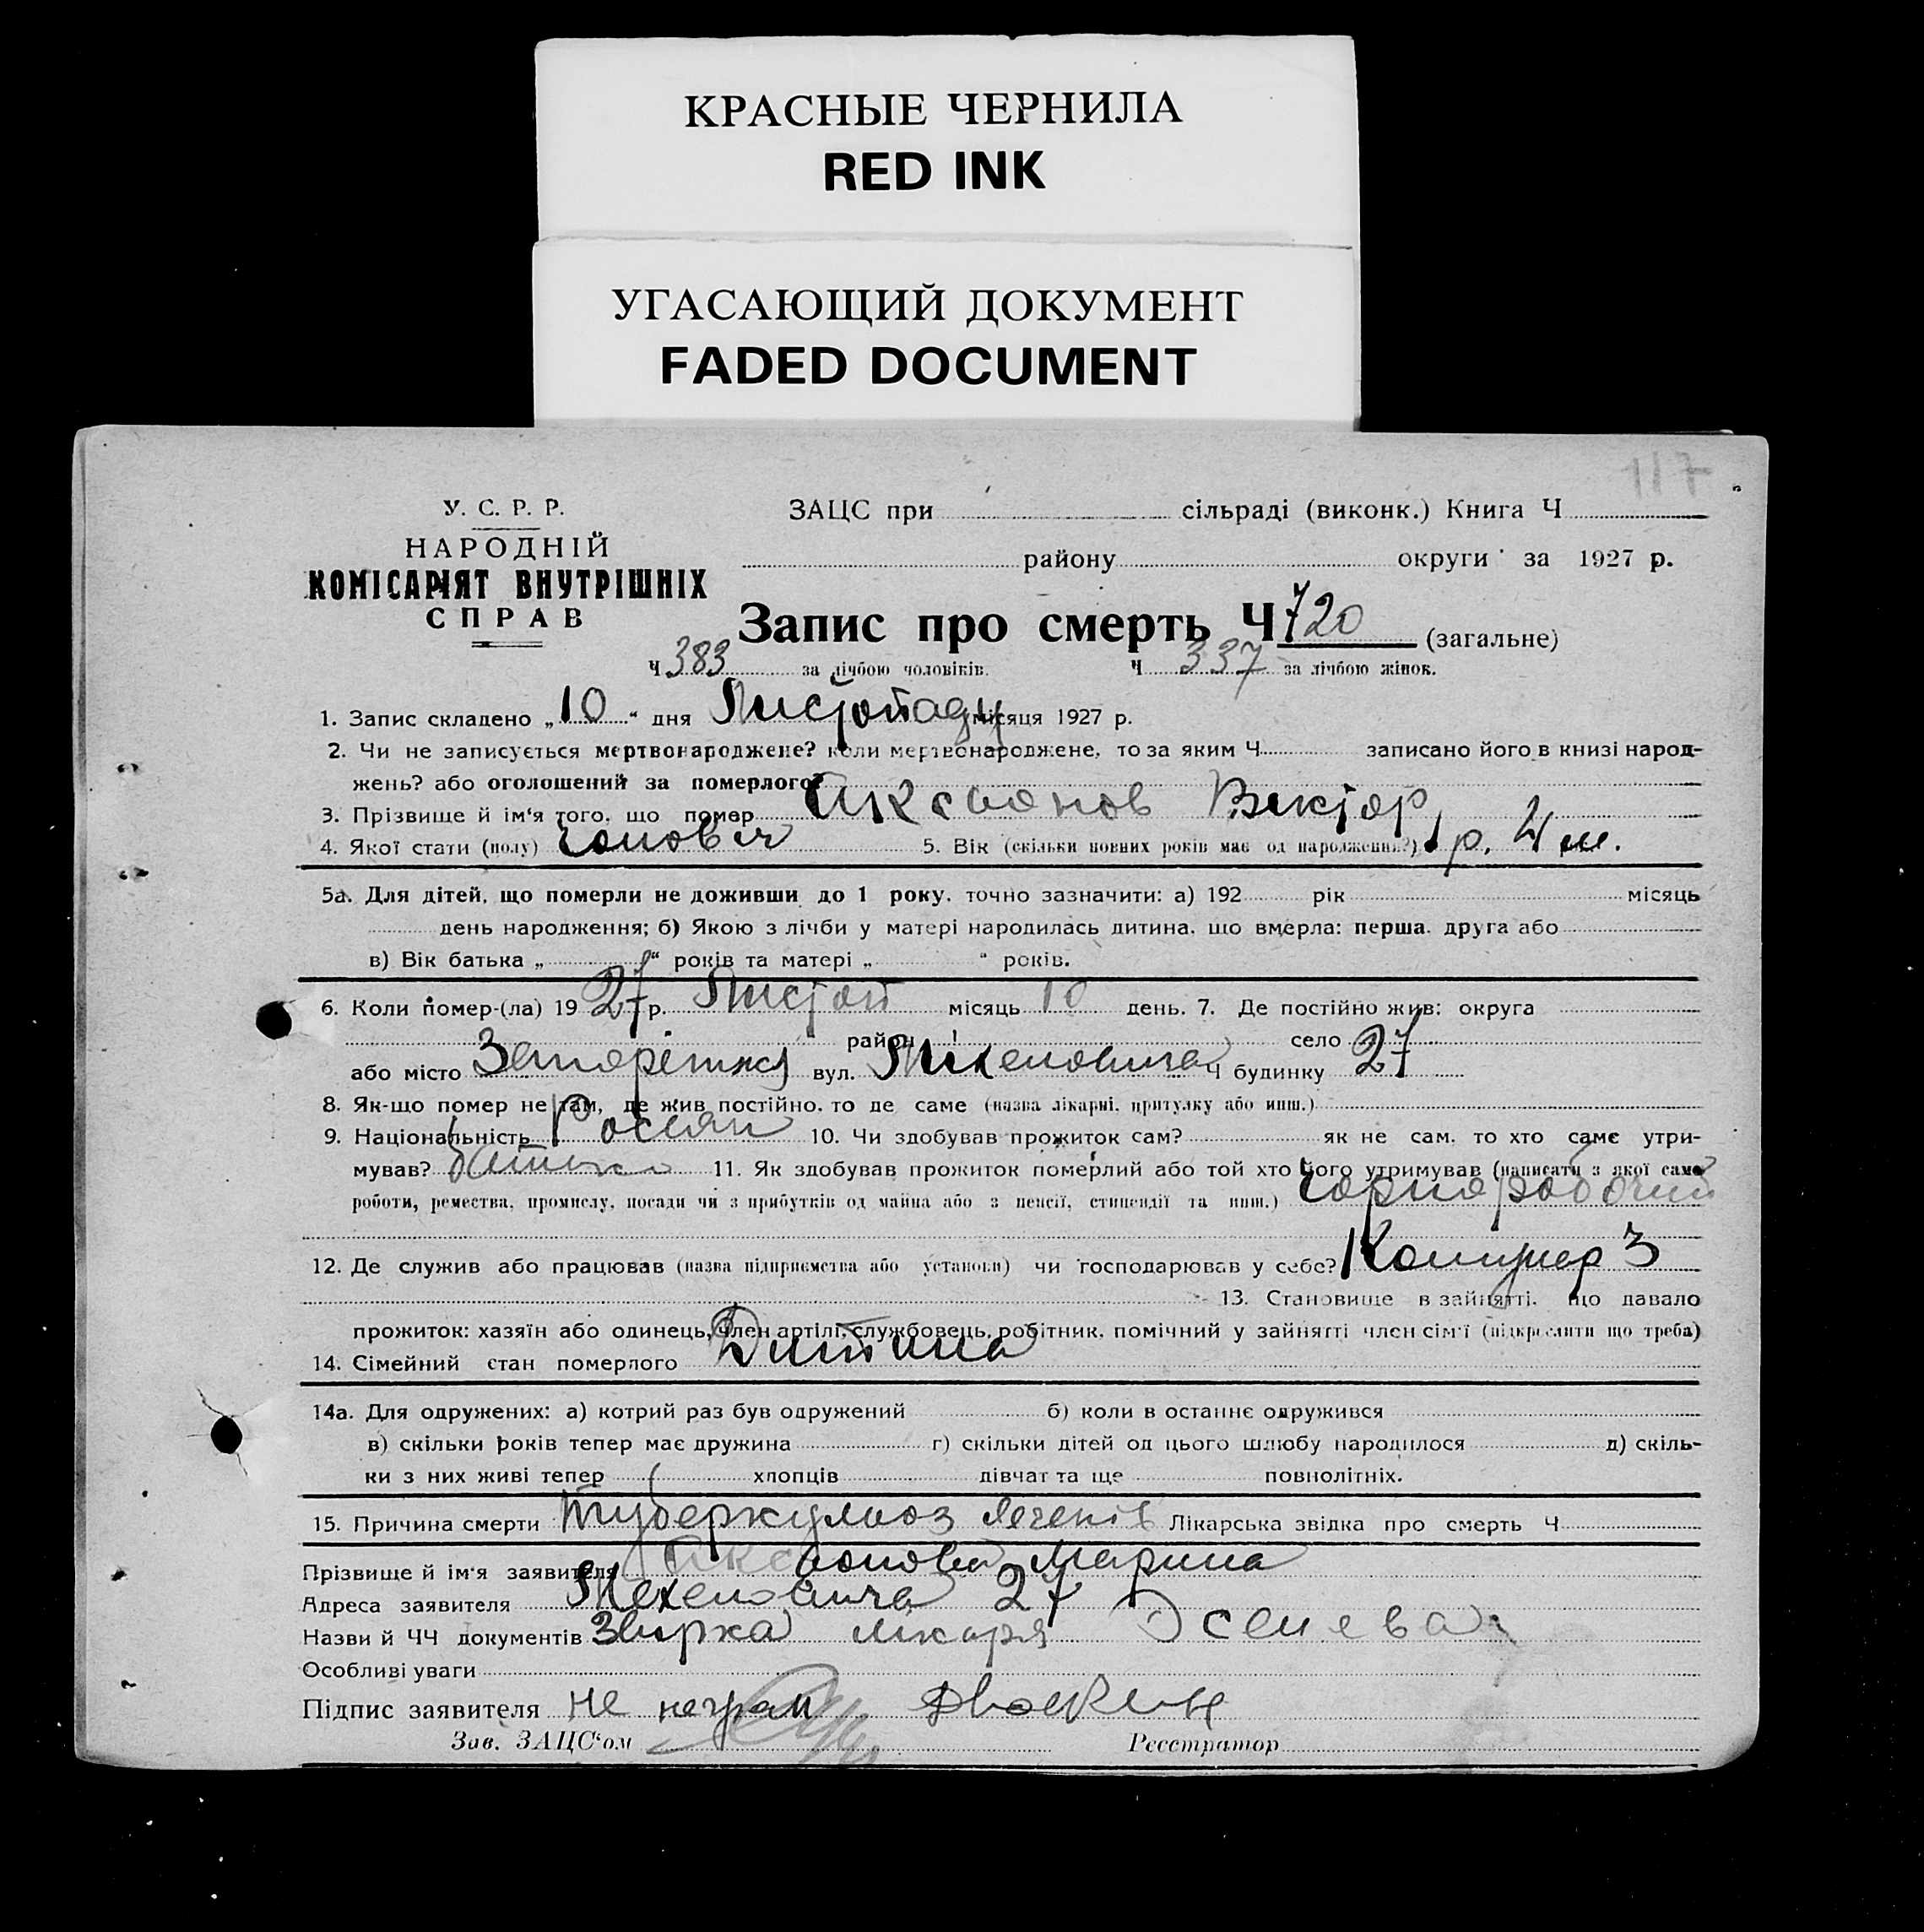 КРАСНЫЕ ЧЕРНИЛА
RED INK
УГАСАЮЩИЙ ДОКУМЕНТ
FADED DOCUMENT
117
У. С. Р. Р.
НАРОДНІЙ
КОМІСАРІЯТ ВНУТРІШНІХ
СПРАВ
ЗАЦС при сільраді (виконк.) Книга Ч
району округи за 1927 р.
Запис про смерть Ч 720 (загальне)
Ч 383 за лічбою чоловіків. Ч 337 за лічбою жінок.
1. Запис складено „10“ дня Листопаду місяця 1927 р.
2. Чи не записується мертвонароджене? коли мертвонароджене, то за яким Ч записано його в книзі народ-
жень? або оголошений за померлого?
3. Прізвище й ім‘я того, що помер Виктор
4. Якої стати (полу) чолов 5. Вік (скільки повних років має од народження?) 1 р. 4 м.
5а. Для дітей, що померли не доживши до 1 року, точно зазначити: а) 192 рік місяць
день народження; б) Якою з лічби у матері народилась дитина, що вмерла: перша, друга або
в) Вік батька „ “ років та матері „ “ років.
6. Коли помер-(ла) 1927 р. Листоп місяць 10 день. 7. Де постійно жив: округа
район село
або місто Запоріжжя вул. Ч будинку 27
8. Як-що помер не там, де жив постійно, то де саме (назва лікарні, притулку або инш.)
9. Національність Росіян 10. Чи здобував прожиток сам? як не сам, то хто саме утри-
мував? батько 11. Як здобував прожиток померлий або той хто його утримував (написати з якої саме
роботи, ремества, промислу, посади чи з прибутків од майна або з пенсії, стипендії та инш.) чорноробочий
12. Де служив або працював (назва підприємства або установи) чи господарював у себе? Комунар З
13. Становище в зайнятті, що давало
прожиток: хазяїн або одинець, член артілі, службовець, робітник, помічний у зайнятті член сім‘ї (підкреслити що треба)
14. Сімейний стан померлого Дитина
14а. Для одружених: а) котрий раз був одружений б) коли в останнє одружився
в) скільки років тепер має дружина г) скільки дітей од цього шлюбу народилося д) скіль-
ки з них живі тепер хлопців дівчат та ще повнолітніх.
15. Причина смерти Туберкульоз легенів Лікарська звідка про смерть Ч
Прізвище й ім‘я заявителя Марина
Адреса заявителя 27
Назви й ЧЧ документів лікаря
Особливі уваги
Підпис заявителя не неграм
Зав. ЗАЦС‘ом Реєстратор